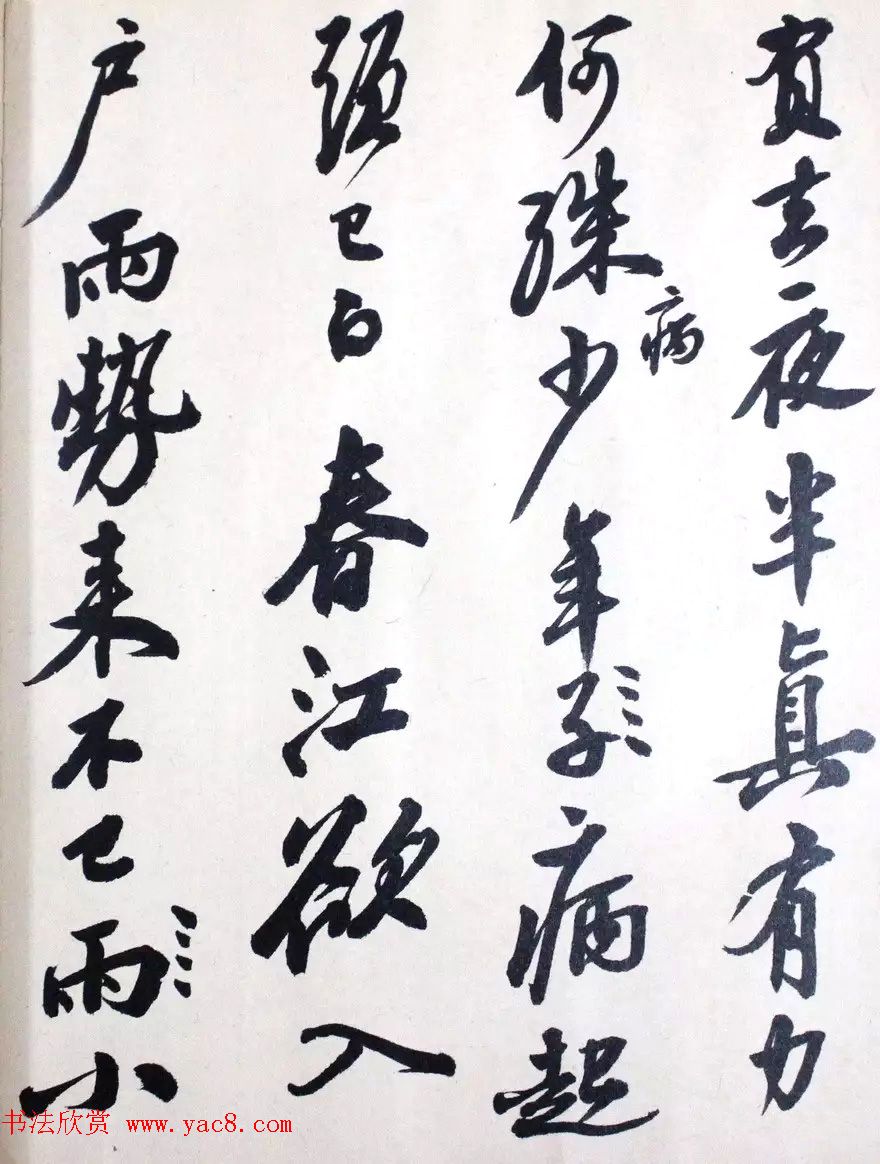 負去夜半真有力
何殊病少年子病起
頭已白春江欲入
户雨勢来不已雨小
书法欣赏 www.yac8.com